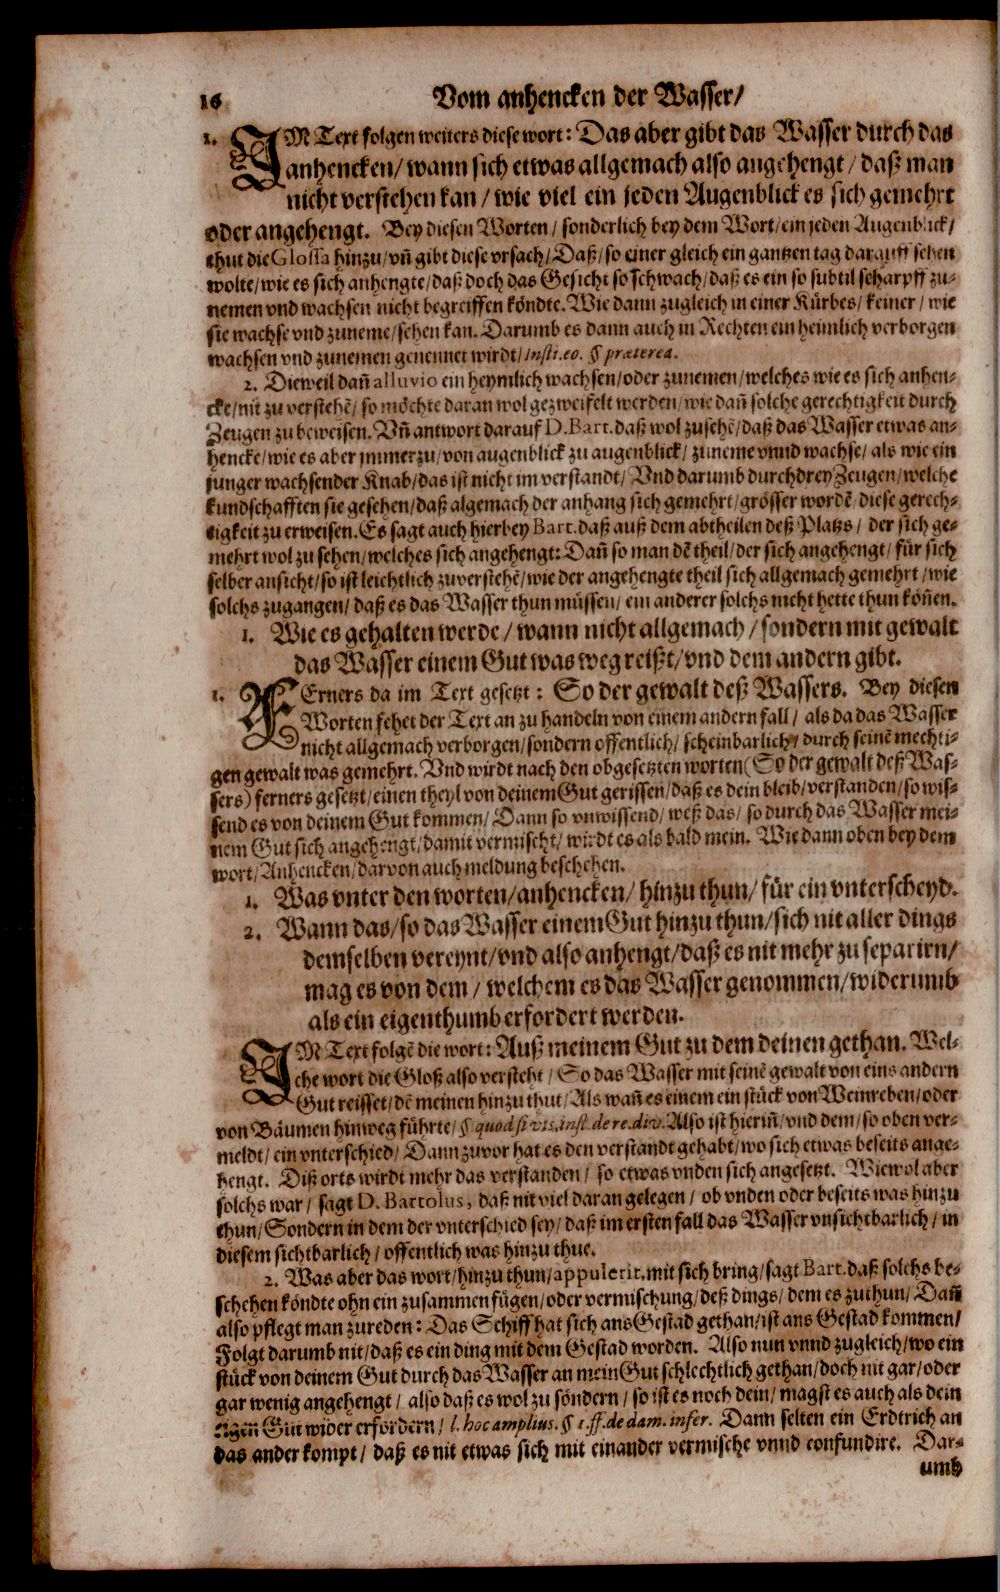 16 Vom anhencken der Wasser/
1. IM Text folgen weiters diese wort: Das aber gibt das Wasser durch das
anhencken/ wann sich etwas allgemach also angehengt/ daß man
nicht verstehen kan/ wie viel ein jeden Augenblick es sich gemehrt
oder angehengt. Bey diesen Worten/ sonderlich bey dem Wort/ ein jeden Augenblick/
thut die Glossa hinzu/ vñ gibt diese vrsach/ Daß/ so einer gleich ein gantzen tag darauff sehen
wolte/ wie es sich anhengte/ daß doch das Gesicht so schwach/ daß es ein so subtil scharpff zu-
nemen vnd wachsen nicht begreiffen köndte. Wie dann zugleich in einer Kürbes/ keiner/ wie
sie wachse vnd zuneme/ sehen kan. Darumb es dann auch in Rechten ein heimlich verborgen
wachsen vnd zunemen genennet wirdt/ Insti. eo. § præterea.
2. Dieweil dañ alluvio ein heymlich wachsen/ oder zunemen/ welches wie es sich anhen-
cke/ nit zu verstehẽ/ so möchte daran wol gezweifelt werden/ wie dañ solche gerechtigkeit durch
Zeugen zu beweisen. Vñ antwort darauf D. Bart. daß wol zusehẽ/ daß das Wasser etwas an-
hencke/ wie es aber jmmerzu/ von augenblick zu augenblick/ zuneme vnnd wachse/ als wie ein
junger wachsender Knab/ das ist nicht im verstandt/ Vnd darumb durch drey Zeugen/ welche
kundschafften sie gesehen/ daß algemach der anhang sich gemehrt/ grösser wordẽ/ diese gerech-
tigkeit zu erweisen. Es sagt auch hierbey Bart. daß auß dem abtheilen deß Platzs/ der sich ge-
mehrt wol zu sehen/ welches sich angehengt: Dañ so man dẽ theil/ der sich angehengt/ für sich
selber ansicht/ so ist leichtlich zuverstehẽ/ wie der angehengte theil sich allgemach gemehrt/ wie
solchs zugangen/ daß es das Wasser thun müssen/ ein anderer solchs nicht hette thun köñen.
1. Wie es gehalten werde/ wann nicht allgemach/ sondern mit gewalt
das Wasser einem Gut was weg reißt/ vnd dem andern gibt.
1. FErners da im Text gesetzt: So der gewalt deß Wassers. Bey diesen
Worten fehet der Text an zu handeln von einem andern fall/ als da das Wasser
nicht allgemach verborgen/ sondern offentlich/ scheinbarlich/ durch seinẽ mechti-
gen gewalt was gemehrt. Vnd wirdt nach den obgesetzten worten (So der gewalt deß Was-
sers) ferners gesetzt/ einen theyl von deinem Gut gerissen/ daß es dein bleib/ verstanden/ so wis-
send es von deinem Gut kommen/ Dann so vnwissend/ weß das/ so durch das Wasser mei-
nem Gut sich angehengt/ damit vermischt/ wirdt es als bald mein. Wie dann oben bey dem
wort/ Anhencken/ darvon auch meldung beschehen.
1. Was vnter den worten/ anhencken/ hinzu thun/ für ein vnterscheyd.
2. Wann das/ so das Wasser einem Gut hinzu thun/ sich nit aller dings
demselben vereynt/ vnd also anhengt/ daß es nit mehr zu separirn/
mag es von dem/ welchem es das Wasser genommen/ widerumb
als ein eigenthumb erfordert werden.
IM Text folgẽ die wort: Auß meinem Gut zu dem deinen gethan. Wel-
che wort die Gloß also versteht/ So das Wasser mit seinẽ gewalt von eins andern
Gut reisset/ dẽ meinen hinzu thut/ Als wañ es einem ein stück von Weinreben/ oder
von Bäumen hinweg führte/ § quod si vis, inst. de re. div. Also ist hieriñ/ vnd dem/ so oben ver-
meldt/ ein vnterschied/ Dann zuvor hat es den verstandt gehabt/ wo sich etwas beseits ange-
hengt. Diß orts wirdt mehr das verstanden/ so etwas vnden sich angesetzt. Wiewol aber
solchs war/ sagt D. Bartolus, daß nit viel daran gelegen/ ob vnden oder beseits was hinzu
thun/ Sondern in dem der vnterschied sey/ daß im ersten fall das Wasser vnsichtbarlich/ in
diesem sichtbarlich/ offentlich was hinzu thue.
2. Was aber das wort/ hinzu thun/ appulerit, mit sich bring/ sagt Bart. daß solchs be-
schehen köndte ohn ein zusammen fügen/ oder vermischung/ deß dings/ dem es zuthun/ Dañ
also pflegt man zureden: Das Schiff hat sich ans Gestad gethan/ ist ans Gestad kommen/
Folgt darumb nit/ daß es ein ding mit dem Gestad worden. Also nun vnnd zugleich/ wo ein
stück von deinem Gut durch das Wasser an mein Gut schlechtlich gethan/ doch nit gar/ oder
gar wenig angehengt/ also daß es wol zu söndern/ so ist es noch dein/ magst es auch als dein
eigen Gut wider erfordern/ l. hoc amplius. § 1. ff. de dam. infer. Dann selten ein Erdtrich an
das ander kompt/ daß es nit etwas sich mit einander vermische vnnd confundire. Dar-
umb